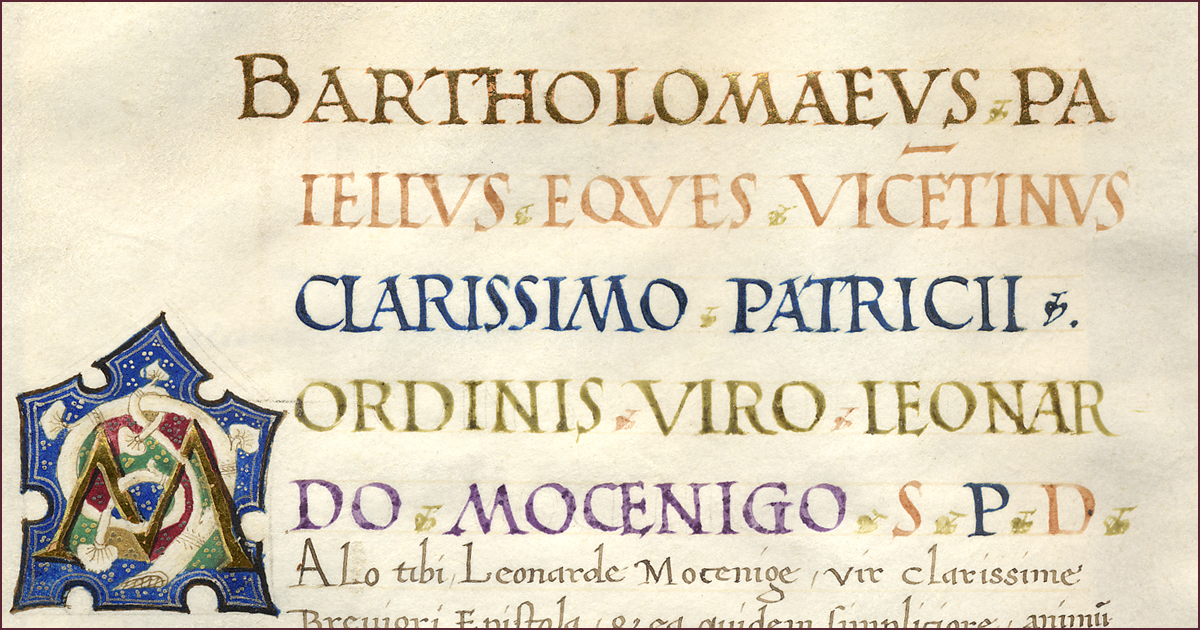 BARTHOLOMAEVS PA
IELLVS EQVES VICE̅TINVS
CLARISSIMO PATRICII .
ORDINIS VIRO LEONAR
DO MOCENIGO S P D
MALo tibi, Leonarde Mocenige, vir clarissime
Breuiori Epiſtola, & ea quidem ſimpliciore, animū